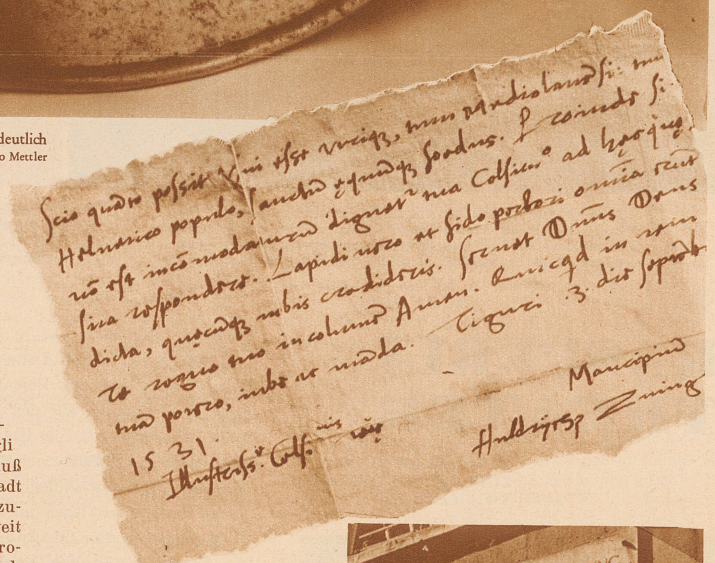 deutlich
o Mettler
Scio quāto possit vini esse utriqꝫ, tum Mediolanēsi: tum
Helvetico populo, sanctū ęquumqꝫ foedus. Proinde si
nō est incōmodaturū dignetʳ tua Celsituᵒ ad hęc quę
sita respondere. Lapidi vero et fido portori omīa erūt
dicta, quęcūqꝫ nobis credideris. Servet Dn̄s Deus
Te regno tuo incolumē Amen. Quicqd in rem
tuā potero, iube ac māda. Tiguri .3. die septēb
1531.
Illustrissᵉ. Celsⁿⁱˢ tuę
Mancipiū
Huldrychꝰ Zuing
gli
uß
adt
zu-
eit
ro-